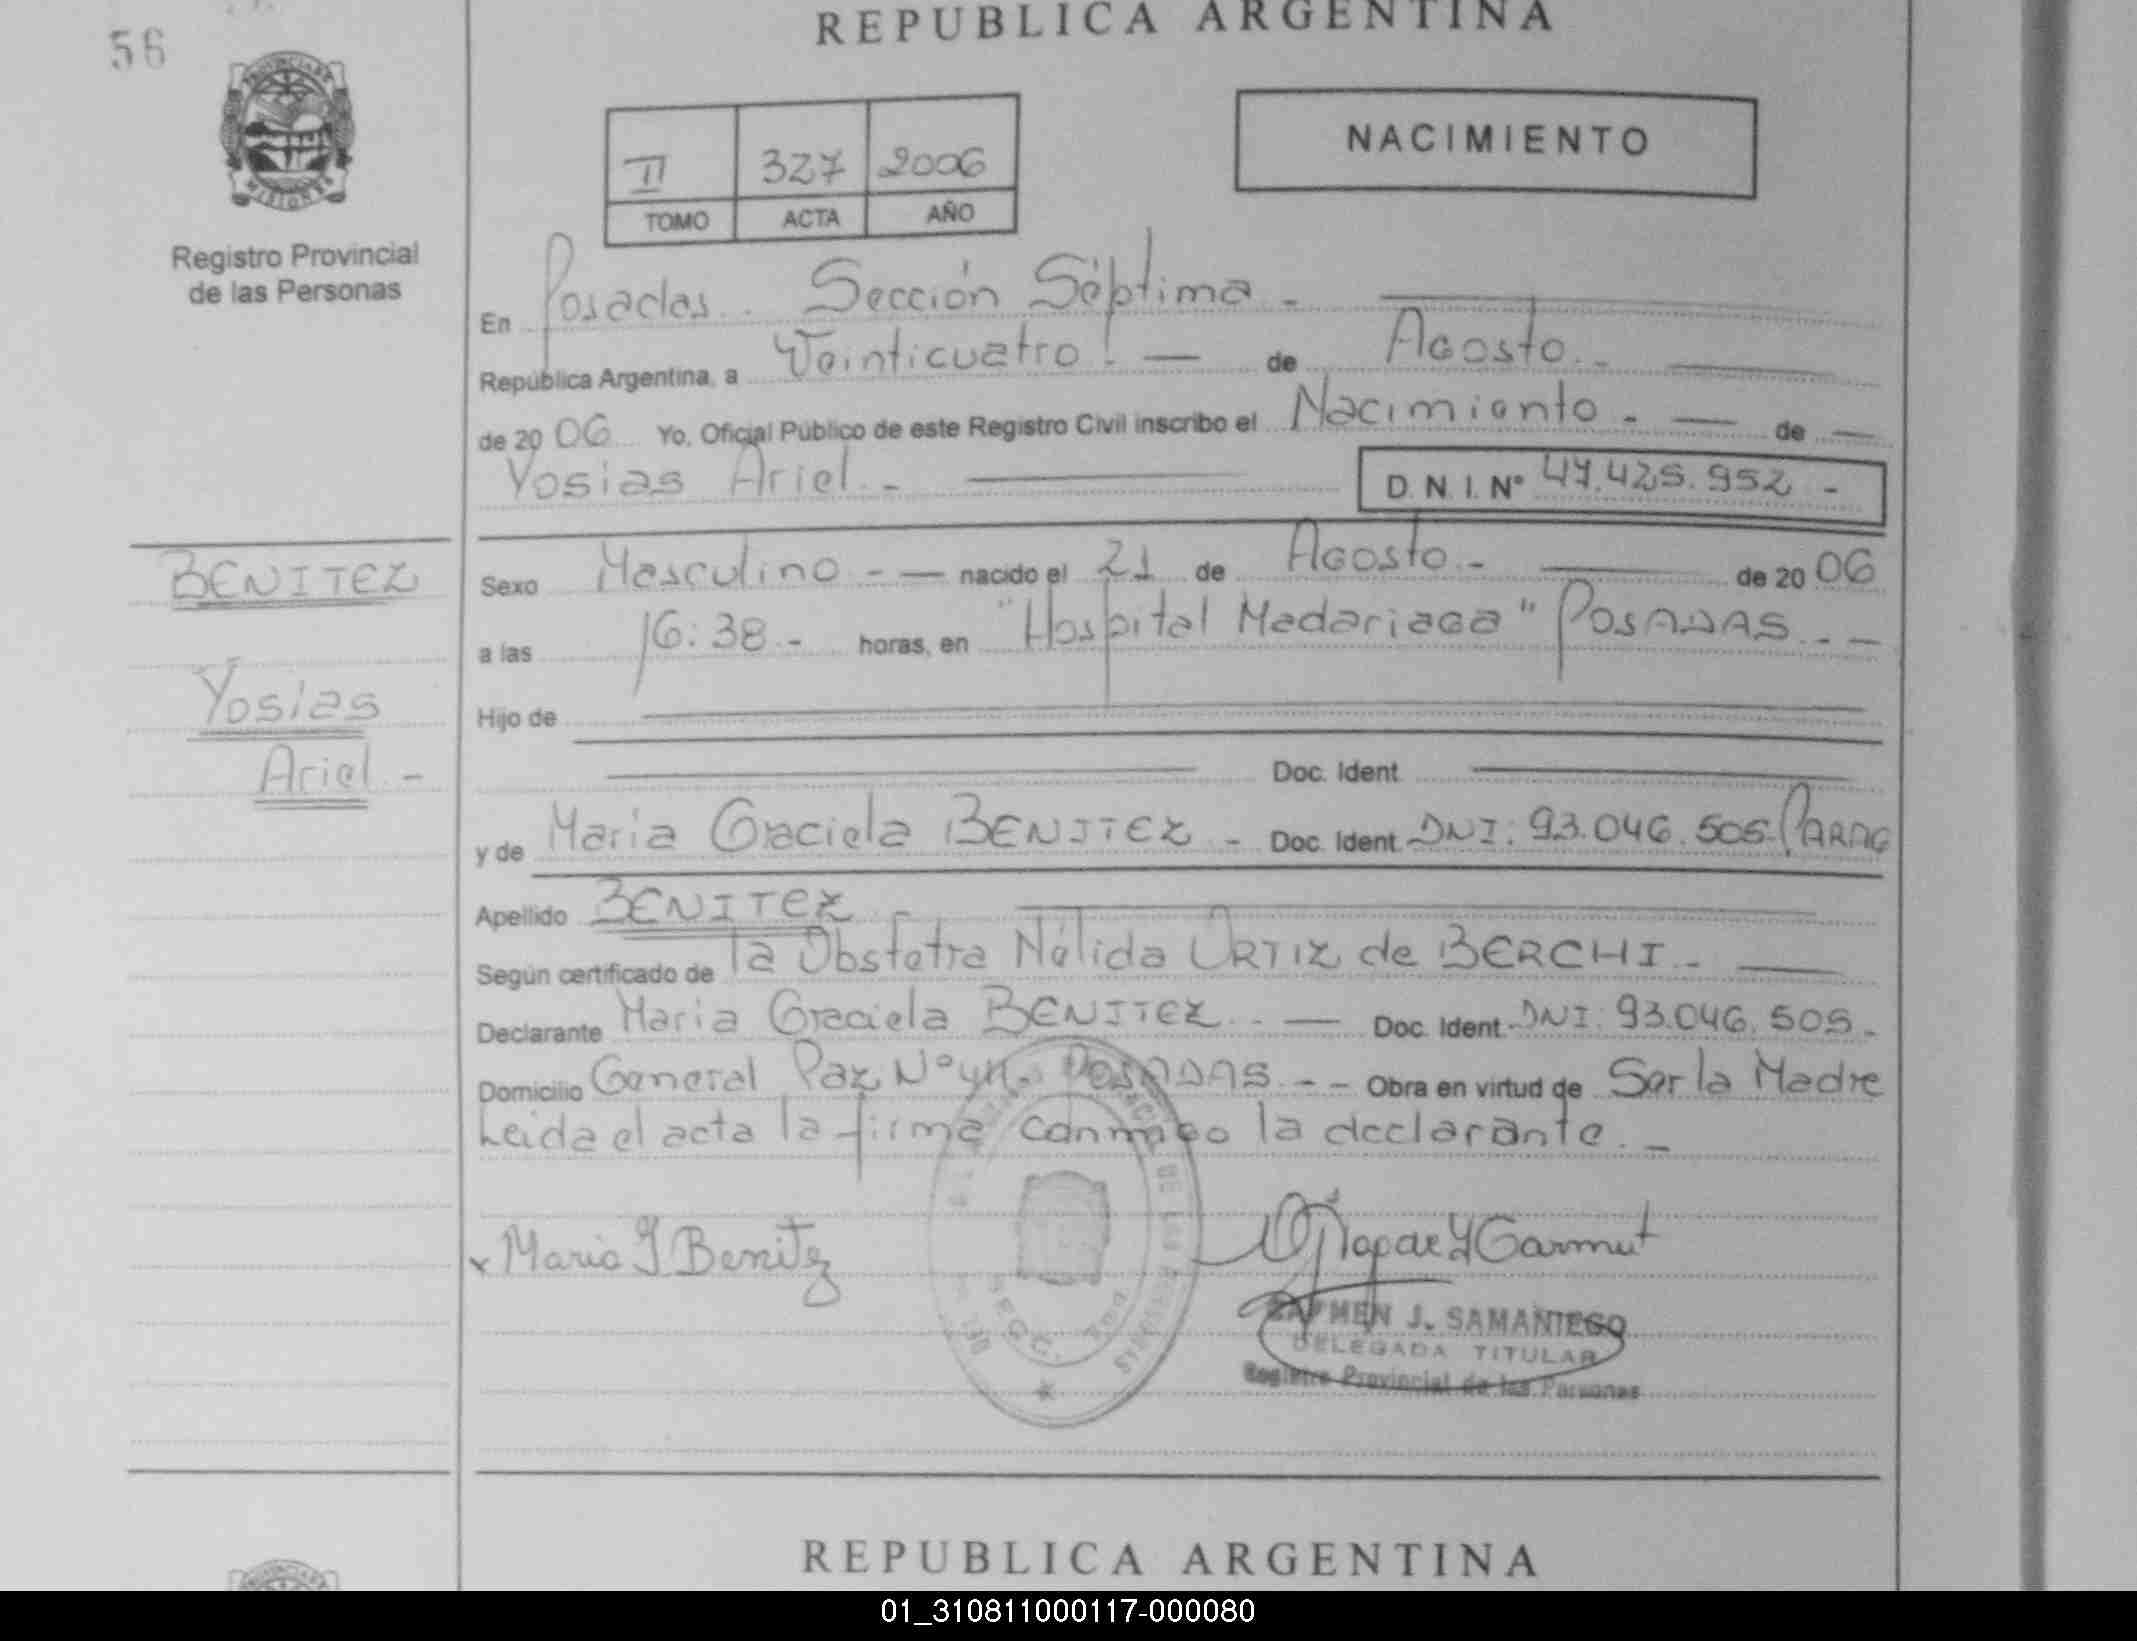 56
REPUBLICA ARGENTINA
NACIMIENTO
II 327 2006
TOMO ACTA AÑO
Registro Provincial
de las Personas
En Posadas. Sección Séptima -
República Argentina, a Veinticuatro. — de Agosto. -
de 2006 Yo, Oficial Público de este Registro Civil inscribo el Nacimiento - — de —
Yosias Ariel. -
D. N. I. N° 47.425.952 -
BENITEZ
Yosias
Ariel. -
Sexo Masculino - — nacido el 21 de Agosto. - de 2006
a las 16:38 - horas, en "Hospital Madariaga" POSADAS. - —
Hijo de
Doc. Ident.
y de Maria Graciela BENITEZ - Doc. Ident. DNI: 93.046.505. PARAG
Apellido BENITEZ
Según certificado de la Obstetra Nélida ORTIZ de BERCHI. -
Declarante Maria Graciela BENITEZ. - — Doc. Ident. DNI: 93.046.505. -
Domicilio General Paz N° POSADAS. - - Obra en virtud de Ser la Madre
Leida el acta la firma conmigo la declarante. -
x Maria G Benitez
MEN J. SAMANIEGO
DELEGADA TITULAR
Registro Provincial de las Personas
REPUBLICA ARGENTINA
01_310811000117-000080